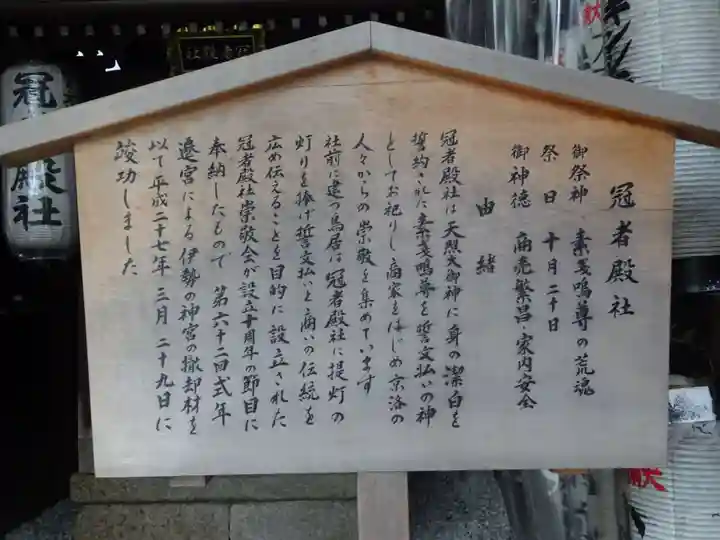 冠者殿社
御祭神 素戔嗚尊の荒魂
祭日 十月二十日
御神徳 商売繁昌・家内安全
由緒
冠者殿社は天照大御神に身の潔白を
誓約された素戔嗚尊を誓文払いの神
としてお祀りし商家をはじめ京洛の
人々からの崇敬を集めています
社前に建つ鳥居は冠者殿社に提灯の
灯りを捧げ誓文払いと商いの伝統を
広め伝えることを目的に設立された
冠者殿社崇敬会が設立十周年の節目に
奉納したもので 第六十二回式年
遷宮による伊勢の神宮の撤却材を
以て平成二十七年 三月 二十九日に
竣功しました
冠者殿社
冠者殿社
献